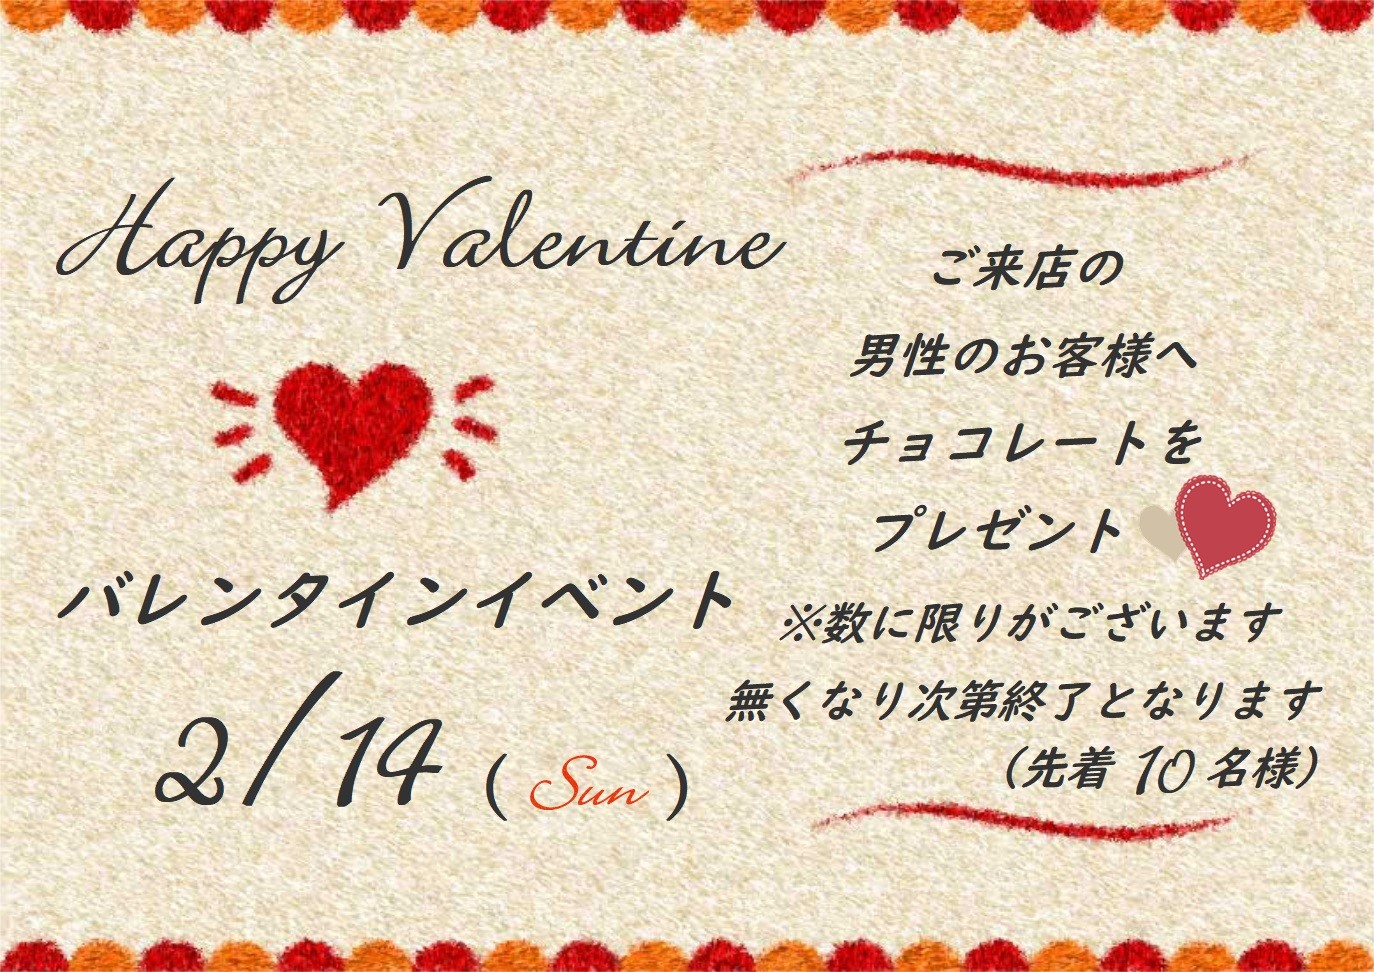 Happy Valentine
バレンタインイベント
2/14 (Sun)
ご来店の
男性のお客様へ
チョコレートを
プレゼント
※数に限りがございます
無くなり次第終了となります
(先着 10 名様)